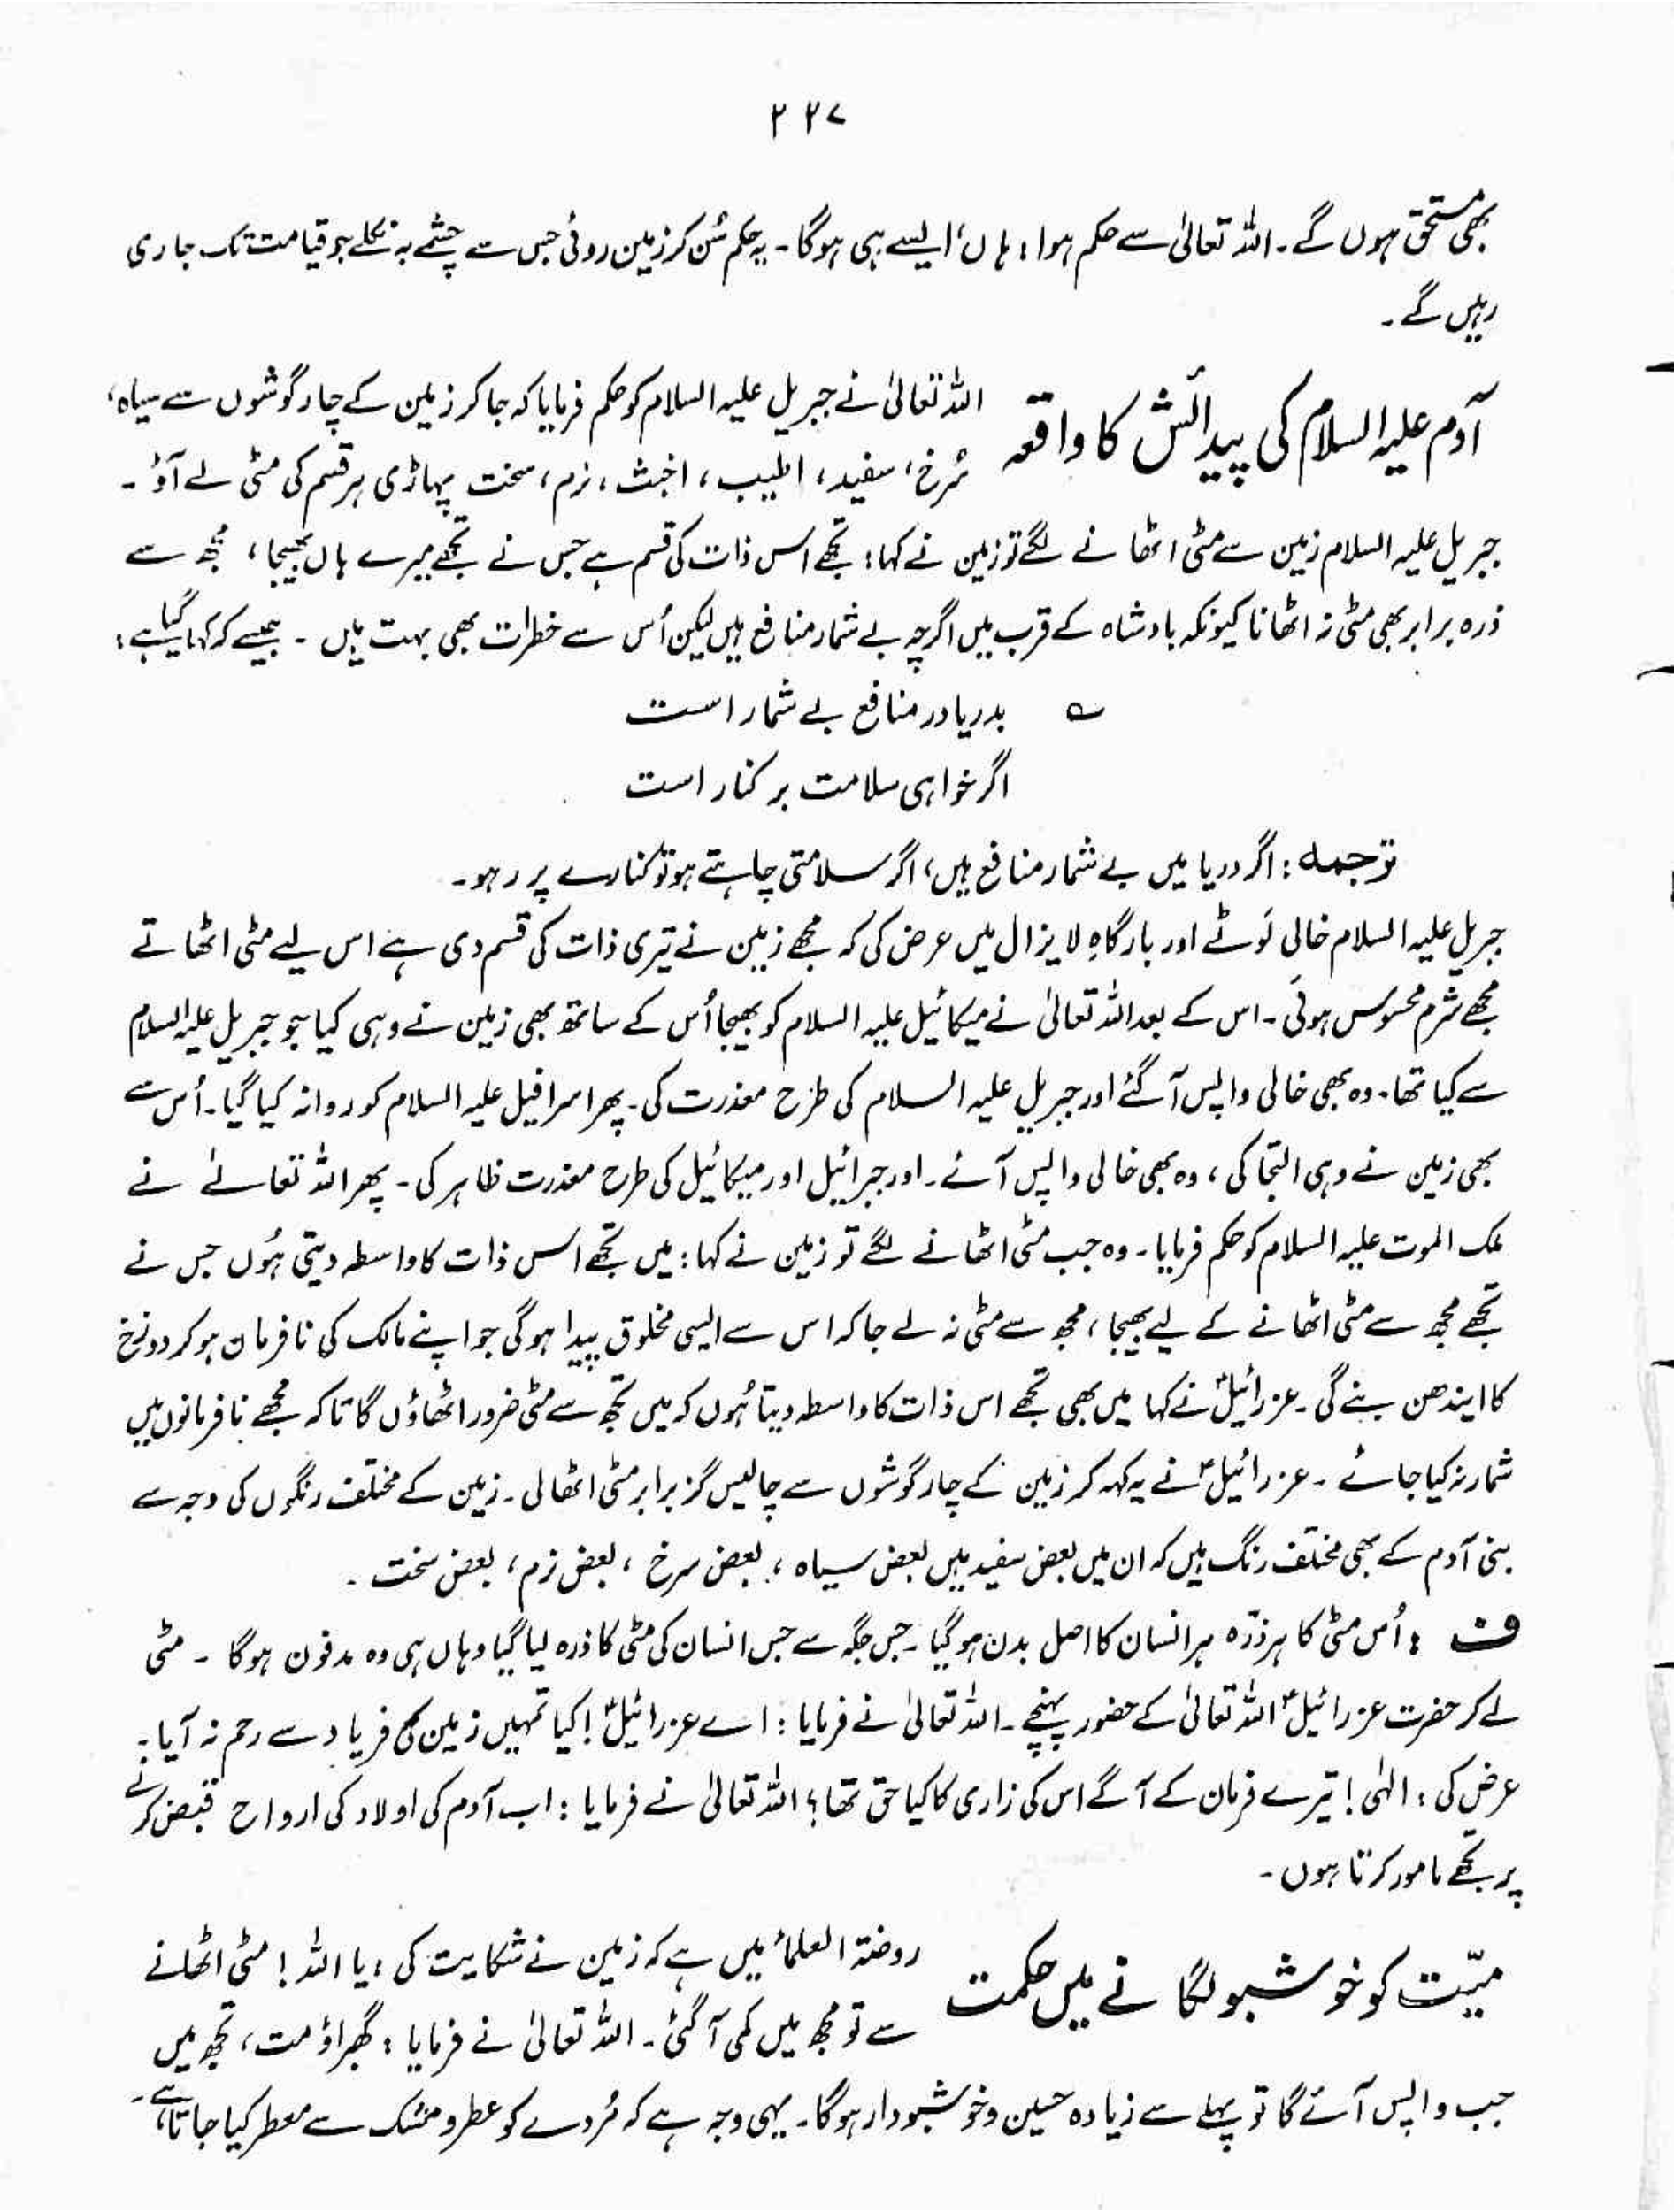 ۲۲۷
بھی مستحق ہوں گے۔ اللہ تعالیٰ سے حکم ہوا: ہاں، ایسے ہی ہوگا۔ یہ حکم سُن کر زمین روئی جس سے چشمے بہ نکلے جو قیامت تک جاری
رہیں گے۔
آدم علیہ السلام کی پیدائش کا واقعہ
اللہ تعالیٰ نے جبریل علیہ السلام کو حکم فرمایا کہ جا کر زمین کے چار گوشوں سے سیاہ،
سُرخ، سفید، اطیب، اخبث، نرم، سخت پہاڑی ہر قسم کی مٹی لے آؤ۔
جبریل علیہ السلام زمین سے مٹی اٹھانے لگے تو زمین نے کہا: تجھے اس ذات کی قسم ہے جس نے تجھے میرے ہاں بھیجا، مجھ سے
ذرہ برابر بھی مٹی نہ اٹھانا کیونکہ بادشاہ کے قرب میں اگرچہ بے شمار منافع ہیں لیکن اُس سے خطرات بھی بہت ہیں۔ جیسے کہ کہا گیا ہے:
؎ بدریا در منافع بے شمار است
اگر خواہی سلامت بر کنار است
ترجمہ: اگر دریا میں بے شمار منافع ہیں، اگر سلامتی چاہتے ہو تو کنارے پر رہو۔
جبریل علیہ السلام خالی لَوٹے اور بارگاہِ لایزال میں عرض کی کہ مجھے زمین نے تیری ذات کی قسم دی ہے اس لیے مٹی اٹھاتے
مجھے شرم محسوس ہوئی۔ اس کے بعد اللہ تعالیٰ نے میکائیل علیہ السلام کو بھیجا اُس کے ساتھ بھی زمین نے وہی کیا جو جبریل علیہ السلام
سے کیا تھا۔ وہ بھی خالی واپس آگئے اور جبریل علیہ السلام کی طرح معذرت کی۔ پھر اسرافیل علیہ السلام کو روانہ کیا گیا۔ اُس سے
بھی زمین نے وہی التجا کی، وہ بھی خالی واپس آئے۔ اور جبرائیل اور میکائیل کی طرح معذرت ظاہر کی۔ پھر اللہ تعالےٰ نے
ملک الموت علیہ السلام کو حکم فرمایا۔ وہ جب مٹی اٹھانے لگے تو زمین نے کہا: میں تجھے اس ذات کا واسطہ دیتی ہُوں جس نے
تجھے مجھ سے مٹی اٹھانے کے لیے بھیجا، مجھ سے مٹی نہ لے جا کہ اس سے ایسی مخلوق پیدا ہوگی جو اپنے مالک کی نافرمان ہو کر دوزخ
کا ایندھن بنے گی۔ عزرائیلؑ نے کہا میں بھی تجھے اس ذات کا واسطہ دیتا ہُوں کہ میں تجھ سے مٹی ضرور اٹھاؤں گا تاکہ مجھے نافرمانوں میں
شمار نہ کیا جائے۔ عزرائیلؑ نے یہ کہہ کر زمین کے چار گوشوں سے چالیس گز برابر مٹی اٹھالی۔ زمین کے مختلف رنگوں کی وجہ سے
بنی آدم کے بھی مختلف رنگ ہیں کہ ان میں بعض سفید ہیں بعض سیاہ، بعض سرخ، بعض نرم، بعض سخت۔
ف: اُس مٹی کا ہر ذرّہ ہر انسان کا اصل بدن ہوگیا۔ جس جگہ سے جس انسان کی مٹی کا ذرہ لیا گیا وہاں ہی وہ مدفون ہوگا۔ مٹی
لے کر حضرت عزرائیلؑ اللہ تعالیٰ کے حضور پہنچے۔ اللہ تعالیٰ نے فرمایا: اے عزرائیلؑ! کیا تمہیں زمین کی فریاد سے رحم نہ آیا۔
عرض کی: الٰہی! تیرے فرمان کے آگے اس کی زاری کا کیا حق تھا؟ اللہ تعالیٰ نے فرمایا: اب آدم کی اولاد کی ارواح قبض کرنے
پر تجھے مامور کرتا ہوں۔
میّت کو خوشبو لگانے میں حکمت
روضۃ العلماء میں ہے کہ زمین نے شکایت کی: یا اللہ! مٹی اٹھانے
سے تو مجھ میں کمی آگئی۔ اللہ تعالیٰ نے فرمایا: گھبراؤ مت، تجھ میں
جب واپس آئے گا تو پہلے سے زیادہ حسین و خوشبودار ہوگا۔ یہی وجہ ہے کہ مُردے کو عطر و مشک سے معطر کیا جاتا ہے۔